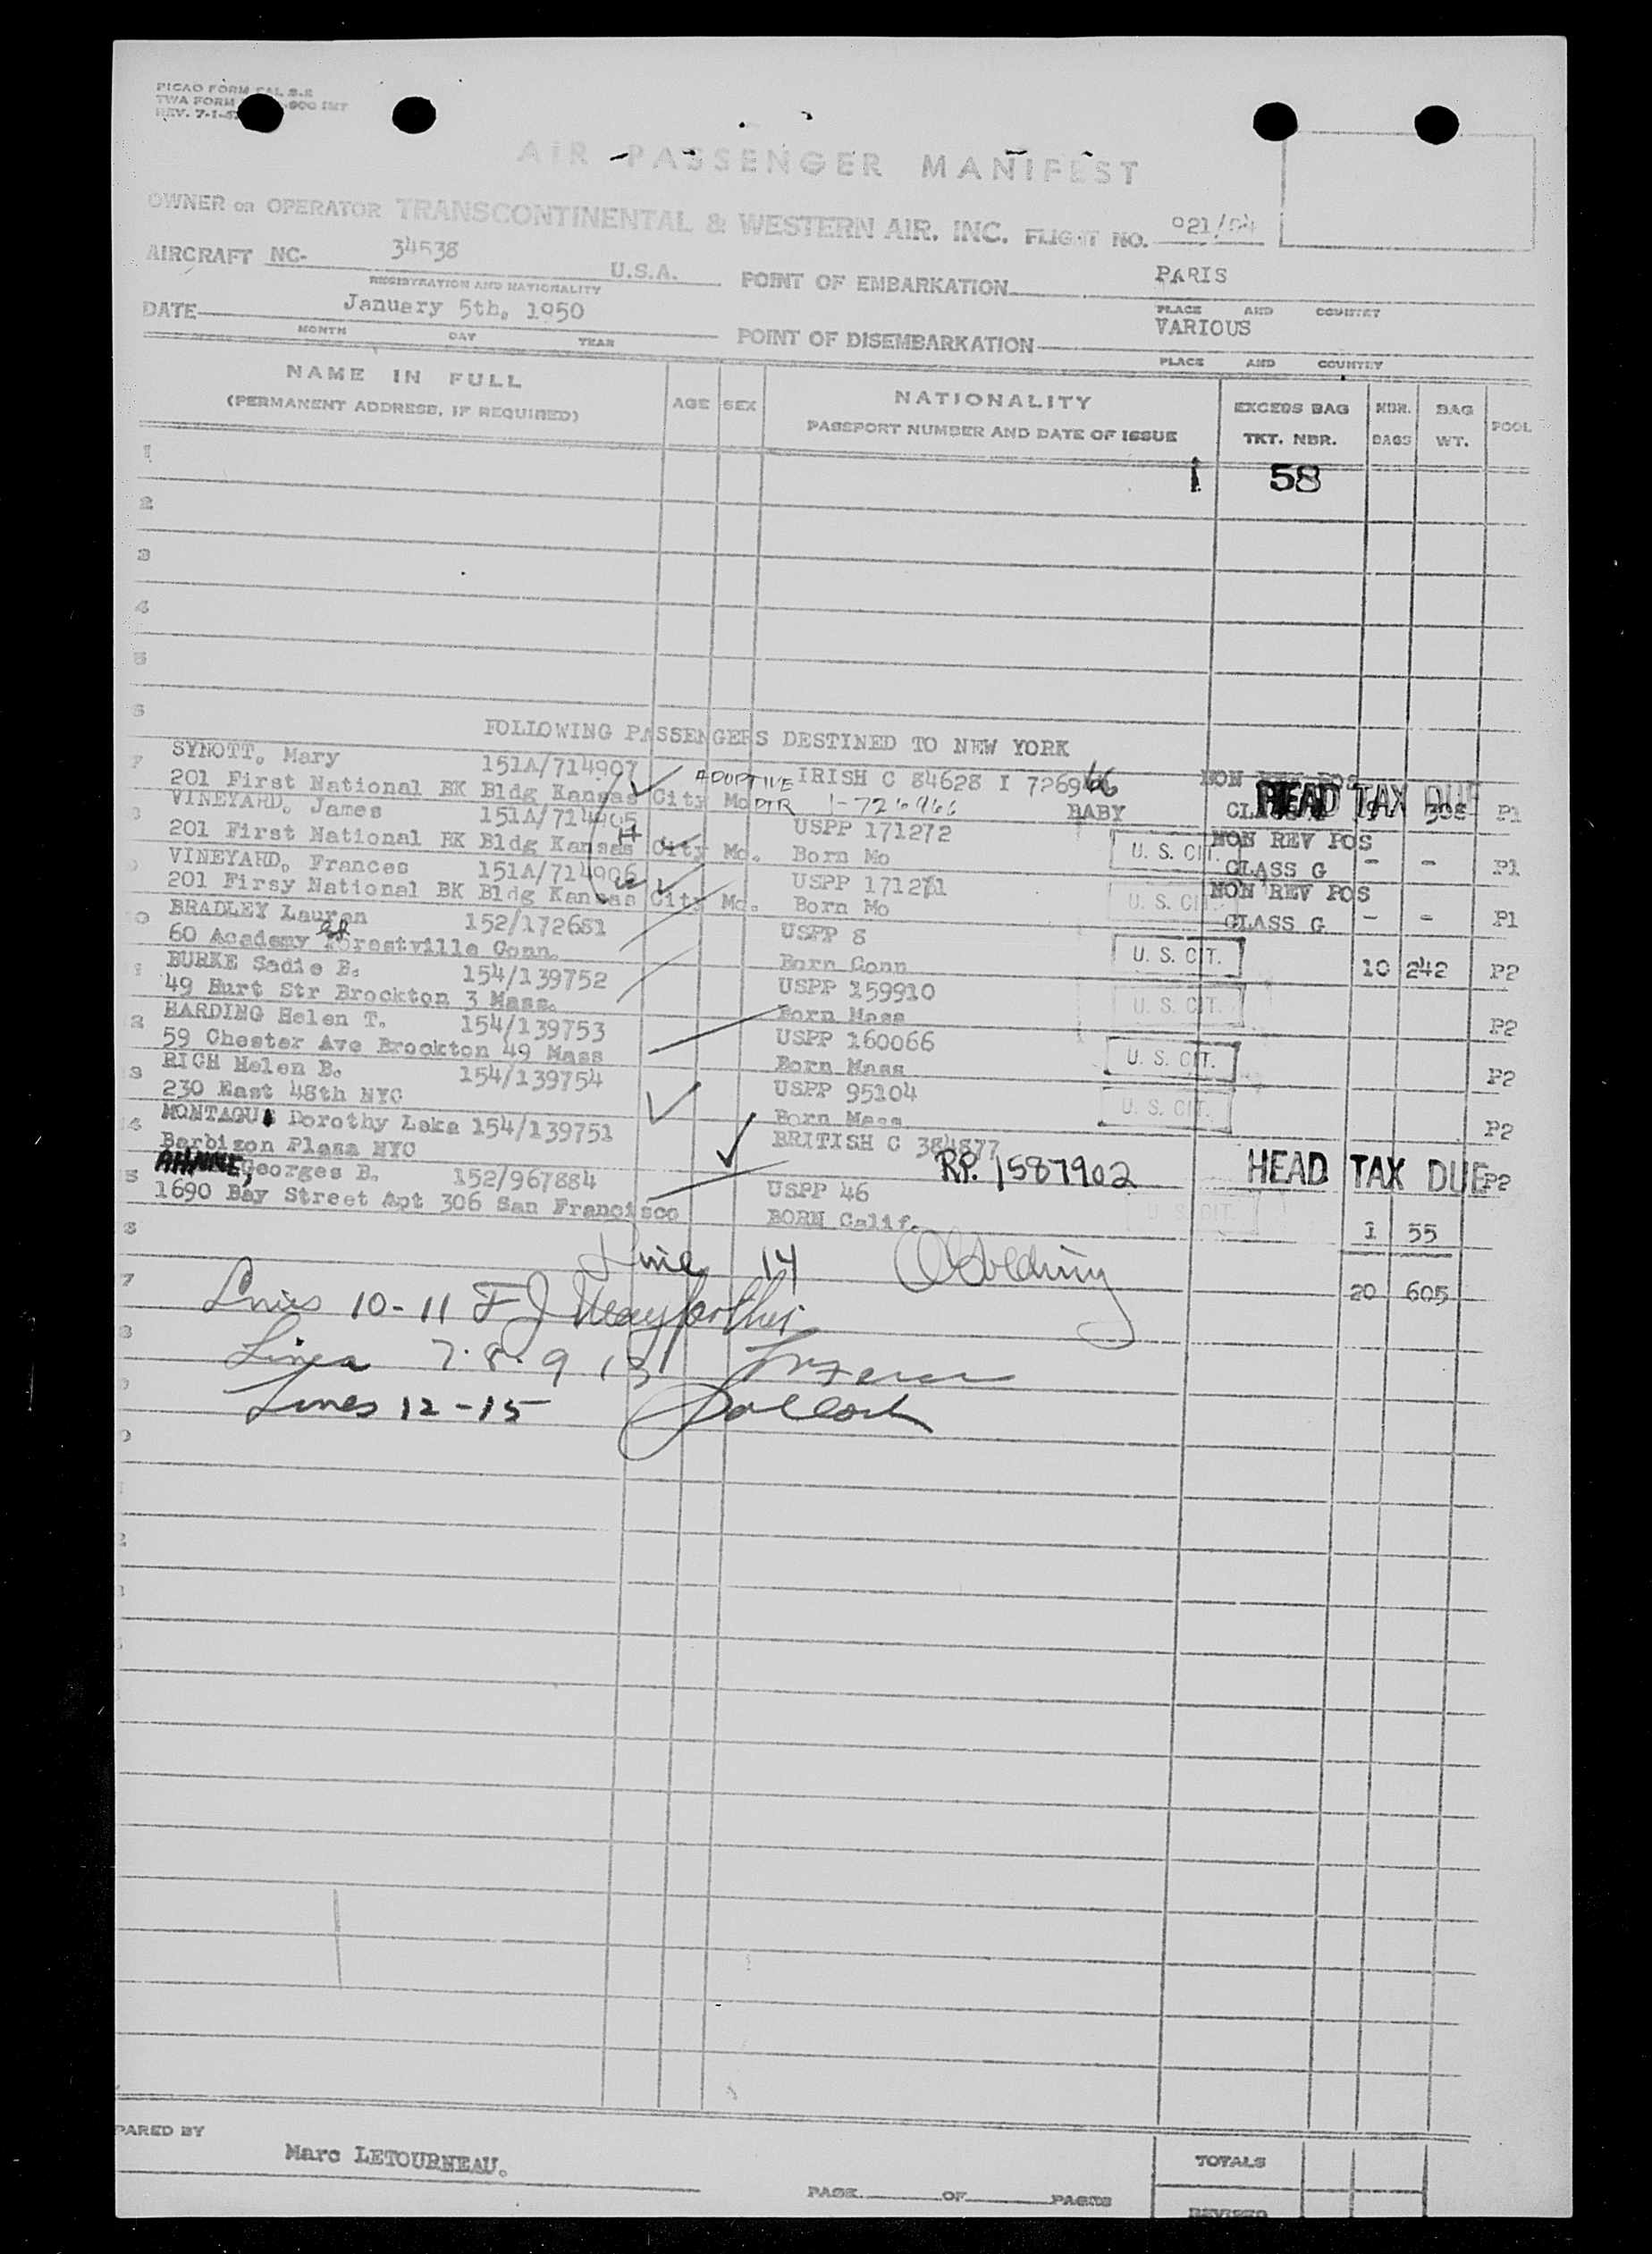 PICAO FORM CAL 2.2
TWA FORM -900 INT
REV. 7-1-
AIR PASSENGER MANIFEST
OWNER OR OPERATOR TRANSCONTINENTAL & WESTERN AIR, INC. FLIGHT NO. 921/54
AIRCRAFT NC- 34538 U.S.A. POINT OF EMBARKATION PARIS
REGISTRATION AND NATIONALITY PLACE AND COUNTRY
DATE January 5th, 1950 POINT OF DISEMBARKATION VARIOUS
MONTH DAY YEAR PLACE AND COUNTRY
NAME IN FULL AGE SEX NATIONALITY EXCESS BAG NBR. BAG POOL
(PERMANENT ADDRESS, IF REQUIRED) PASSPORT NUMBER AND DATE OF ISSUE TKT. NBR. BAGS WT.
1 1 58
2
3
4
5
6 FOLLOWING PASSENGERS DESTINED TO NEW YORK
7 SYNOTT. Mary 151A/714907 ADOPTIVE IRISH C 84628 I 726966 NON REV POS HEAD TAX DUE
201 First National BK Bldg Kansas City Mo DTR 1-726966 BABY CLASS G 9 308 P1
8 VINEYARD. James 151A/714905 H USPP 171272 NON REV POS
201 First National BK Bldg Kansas City Mo. Born Mo U. S. CIT. CLASS G - - P1
9 VINEYARD. Frances 151A/714906 W USPP 171271 NON REV POS
201 Firsy National BK Bldg Kansas City Mo. Born Mo U. S. CIT. CLASS G - - P1
10 BRADLEY Lauren 152/172681 USPP 8
60 Academy Forestville Conn. Born Conn U. S. CIT. 10 242 P2
1 BURKE Sadie B. 154/139752 USPP 159910
49 Hurt Str Brockton 3 Mass. Born Mass U. S. CIT. P2
2 HARDING Helen T. 154/139753 USPP 160066
59 Chester Ave Brockton 49 Mass Born Mass U. S. CIT. P2
3 RICH Helen B. 154/139754 USPP 95104
230 East 48th NYC Born Mass U. S. CIT. P2
4 MONTAGU Dorothy Lake 154/139751 BRITISH C 384877
Barbizon Plaza NYC RP. 1587902 HEAD TAX DUE P2
5 Georges B. 152/967884 USPP 46
1690 Bay Street Apt 306 San Francisco BORN Calif. U. S. CIT. 1 55
6 Line 14
7 Lines 10-11 F J 20 605
8 Lines 7.8.9 13
Lines 12-15
PARED BY
Marc LETOURNEAU.
TOTALS
PAGE OF PAGES
REVISED